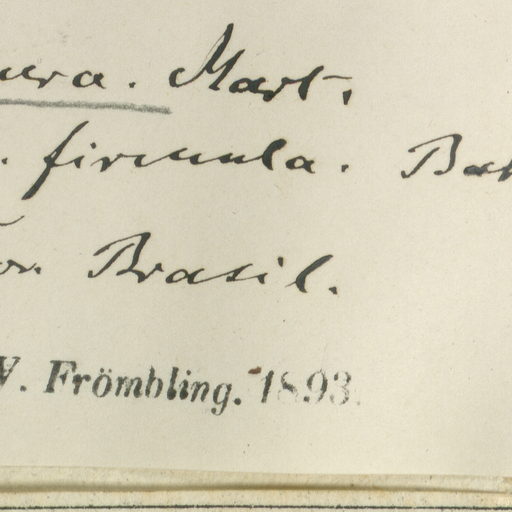 ura. Mart.
. firmula. Bak
or. Brasil.
W. Frömbling. 1893.